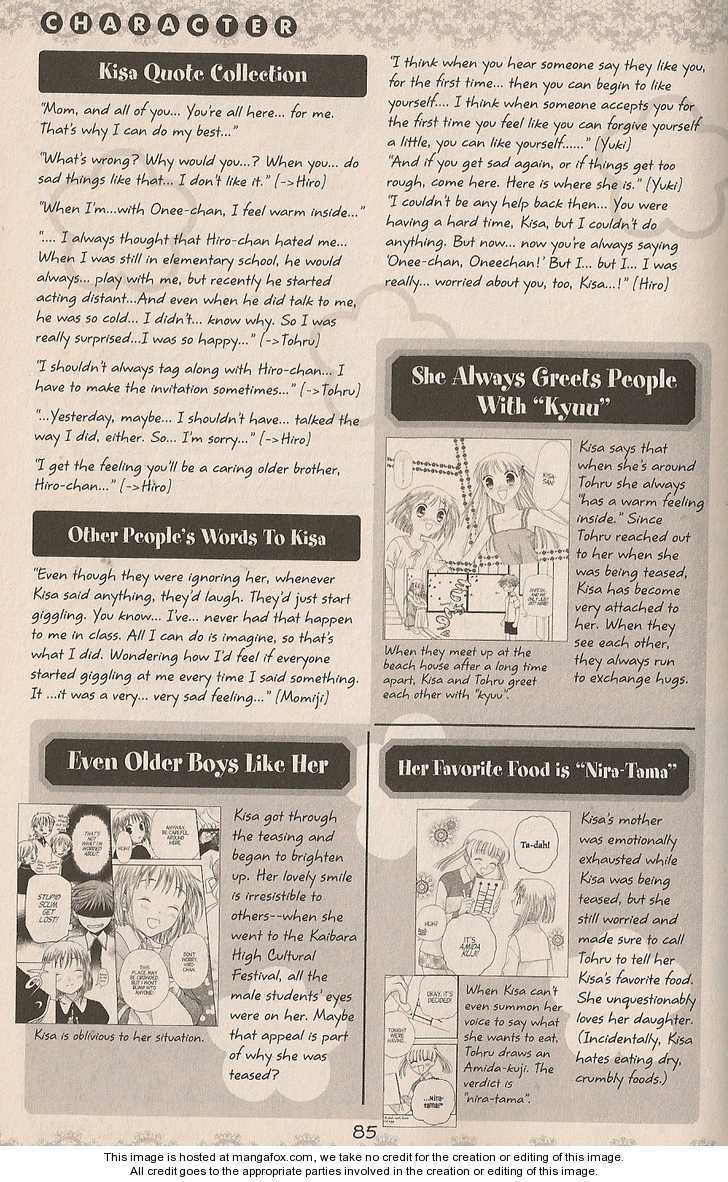 CHARACTER
Kisa Quote Collection
"Mom, and all of you... You're all here... for me.
That's why I can do my best..."
"What's wrong? Why would you...? When you... do
sad things like that... I don't like it." (->Hiro)
"When I'm...with Onee-chan, I feel warm inside..."
".... I always thought that Hiro-chan hated me...
When I was still in elementary school, he would
always... play with me, but recently he started
acting distant...And even when he did talk to me,
he was so cold... I didn't... know why. So I was
really surprised...I was so happy..." (->Tohru)
"I shouldn't always tag along with Hiro-chan... I
have to make the invitation sometimes..." (->Tohru)
"...Yesterday, maybe... I shouldn't have... talked the
way I did, either. So... I'm sorry..." (->Hiro)
"I get the feeling you'll be a caring older brother,
Hiro-chan..." (->Hiro)
Other People's Words To Kisa
"Even though they were ignoring her, whenever
Kisa said anything, they'd laugh. They'd just start
giggling. You know... I've... never had that happen
to me in class. All I can do is imagine, so that's
what I did. Wondering how I'd feel if everyone
started giggling at me every time I said something.
It ...it was a very... very sad feeling..." (Momiji)
"I think when you hear someone say they like you,
for the first time... then you can begin to like
yourself.... I think when someone accepts you for
the first time you feel like you can forgive yourself
a little, you can like yourself......" (Yuki)
"And if you get sad again, or if things get too
rough, come here. Here is where she is." (Yuki)
"I couldn't be any help back then... You were
having a hard time, Kisa, but I couldn't do
anything. But now... now you're always saying
'Onee-chan, Oneechan!' But I... but I... I was
really... worried about you, too, Kisa...!" (Hiro)
She Always Greets People
With "Kyuu"
KISA-
SAN!
Kisa says that
when she's around
Tohru she always
"has a warm feeling
inside." Since
Tohru reached out
to her when she
was being teased,
Kisa has become
very attached to
her. When they
see each other,
they always run
to exchange hugs.
When they meet up at the
beach house after a long time
apart, Kisa and Tohru greet
each other with "kyuu".
Even Older Boys Like Her
THAT'S
NOT WHAT
I'M WORRIED
ABOUT.
ANYWAY,
BE CAREFUL
AROUND
HERE.
HUH?
STUPID
SCUM,
GET
LOST!
DON'T
WORRY,
HIRO-
CHAN.
THIS
PLACE MAY
BE CROWDED,
BUT I WON'T
BUMP INTO
ANYONE!
Kisa got through
the teasing and
began to brighten
up. Her lovely smile
is irresistible to
others--when she
went to the Kaibara
High Cultural
Festival, all the
male students' eyes
were on her. Maybe
that appeal is part
of why she was
teased?
Kisa is oblivious to her situation.
Her Favorite Food is "Nira-Tama"
Ta-dah!
HUH?
IT'S
AMIDA
KUJI!
OKAY, IT'S
DECIDED!
TONIGHT
WE'RE
HAVING...
...NIRA-
TAMA!"
When Kisa can't
even summon her
voice to say what
she wants to eat,
Tohru draws an
Amida-kuji. The
verdict is
"nira-tama".
Kisa's mother
was emotionally
exhausted while
Kisa was being
teased, but she
still worried and
made sure to call
Tohru to tell her
Kisa's favorite food.
She unquestionably
loves her daughter.
(Incidentally, Kisa
hates eating dry,
crumbly foods.)
85
This image is hosted at mangafox.com, we take no credit for the creation or editing of this image.
All credit goes to the appropriate parties involved in the creation or editing of this image.